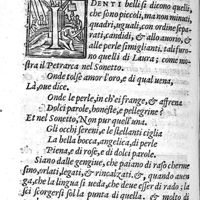 DENTI belli si dicono quelli,
che sono piccoli, ma non minuti,
quadri, uguali, con ordine sepa-
rati, candidi, & allo auorio, &
alle perle simiglianti. tali furo-
no quelli di Laura; come mo-
stra il Petrarca nel Sonetto.
Onde tolse amor l'oro, e di qual uena,
Là, oue dice.
Onde le perle, in ch'ei frange, & affrena
Dolci parole, honeste, e pellegrine?
Et nel Sonetto, Non pur quell'una.
Gli occhi sereni, e le stellanti ciglia
La bella bocca, angelica, di perle
Piena, e di rose, e di dolci parole.
Siano dalle gengiue, che paiano di raso cherme-
sino, orlati, legati, & rincalzati, &, quando auen-
ga, che la lingua si ueda, che deue esser di rado; la-
si scorgersi sol la punta di quella, &